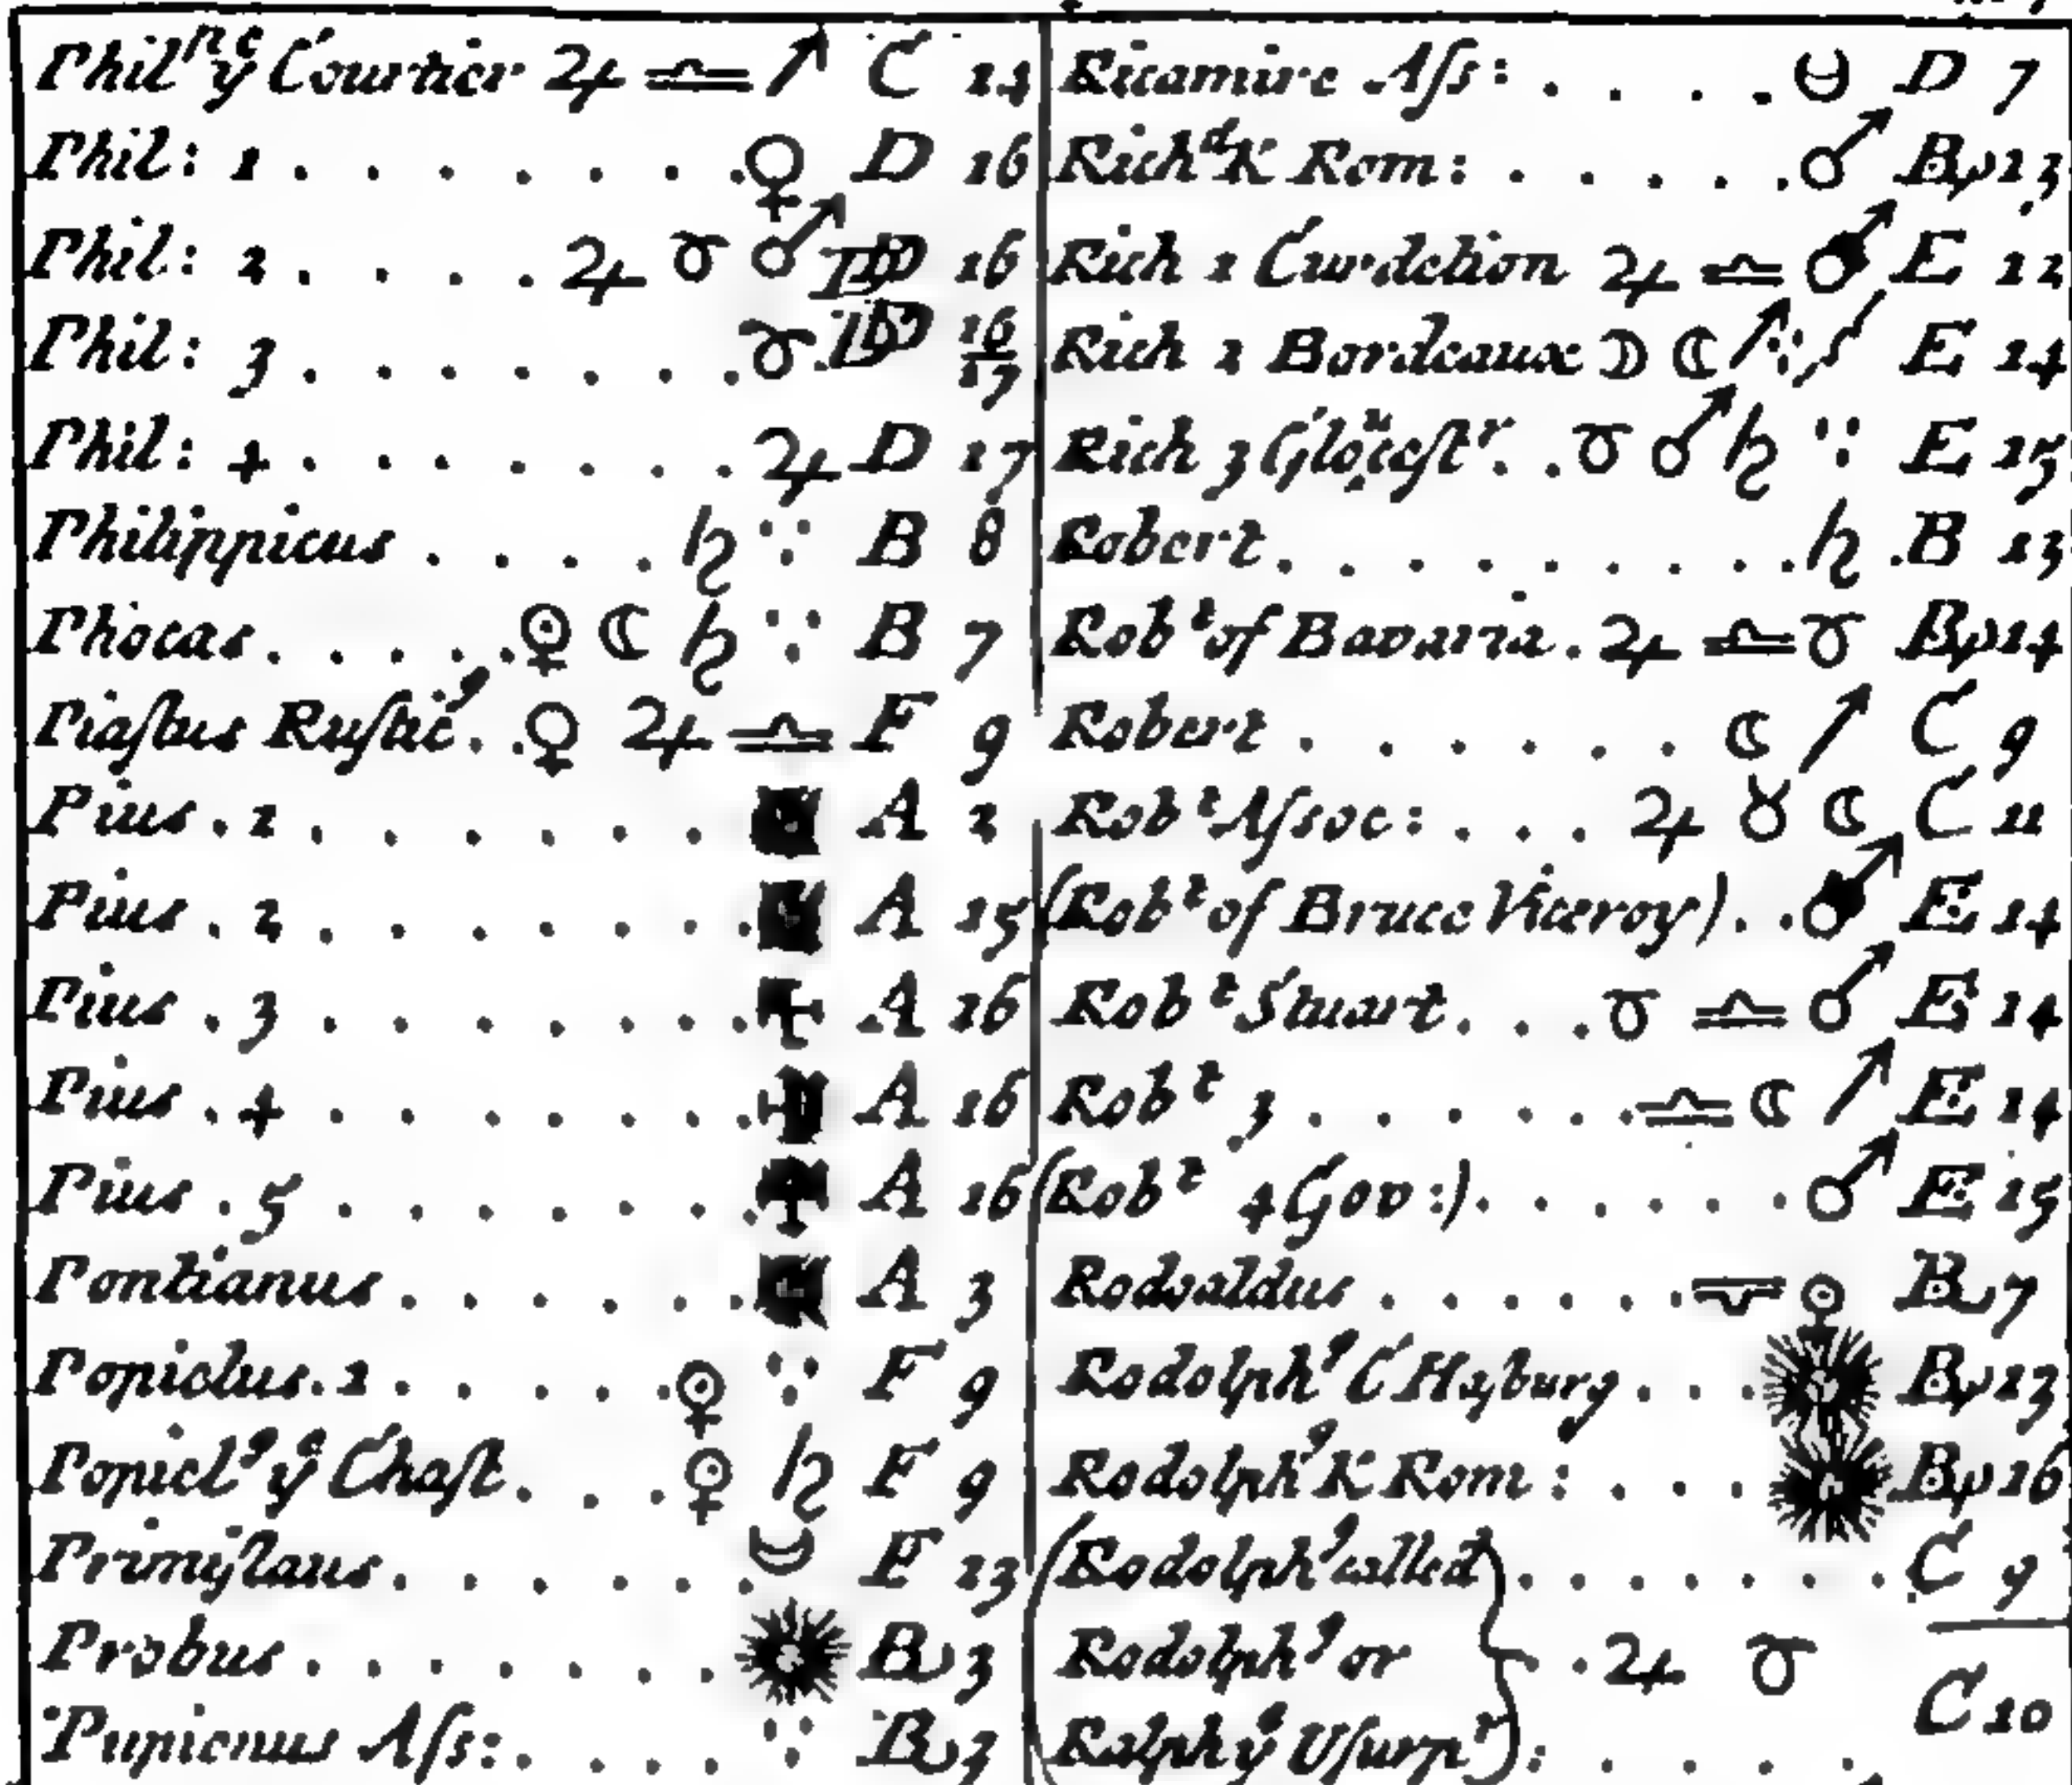 Philpe yͤ Courtier ♃ ♎ ↗ C 14
Phil: 1 . . . . . . . ♀ D 16
Phil: 2 . . . . ♃ ♉ ♂ D 16
Phil: 3 . . . . . . . ♉ D 16 17
Phil: 4 . . . . . . . ♃ D 17
Philippicus . . . . ♄ ∵ B 8
Phocas . . . . . ☾ ♄ ∵ B 7
Piaſtus Ruſtic⁹ . . ♀ ♃ ♎ F 9
Pius . 1 . . . . . . A 2
Pius . 2 . . . . . . A 15
Pius . 3 . . . . . . . A 16
Pius . 4 . . . . . . A 16
Pius . 5 . . . . . . . A 16
Pontianus . . . . . . A 3
Popielus . 1 . . . . . ∵ F 9
Popiel⁹ yͤ Chaſt . . . ♄ F 9
Primiſlaus . . . . . . F 13
Probus . . . . . . . B 3
Pupienus Aſs: . . . . ∵ B 3
Ricamire Aſs: . . . . D 7
Richᵈ K Rom: . . . . . ♂ B 13
Rich 1 Curdelion ♃ ♎ ♂ E 12
Rich 2 Bordeaux ☽ ☾ ↗ ∵ E 14
Rich 3 Gloceſtʳ . . ♉ ♂ ♄ ∵ E 15
Robert . . . . . . . . ♄ B 13
Robᵗ of Bavaria . ♃ ♎ ♉ B 14
Robert . . . . . . ☾ ↗ C 9
Robᵗ Aſsoc: . . . ♃ ♉ ☾ C 11
(Robᵗ of Bruce Viceroy) . . ♂ E 14
Robᵗ Stuart . . . ♉ ♎ ♂ E 14
Robᵗ 3 . . . . . ♎ ☾ ↗ E 14
(Robᵗ 4 Gov:) . . . . . ♂ E 15
Rodoaldus . . . . . . B 7
Rodolph⁹ C Haſburg . . . B 13
Rodolph⁹ K Rom: . . . B 16
(Rodolph⁹ called . . . . . . . C 9
Rodolph⁹ or . . ♃ ♉
Ralph yͤ Uſurpʳ) : . . . . C 10